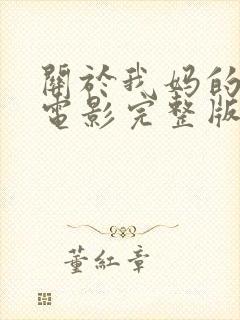 關於我妈的
電影完整版
董紅章